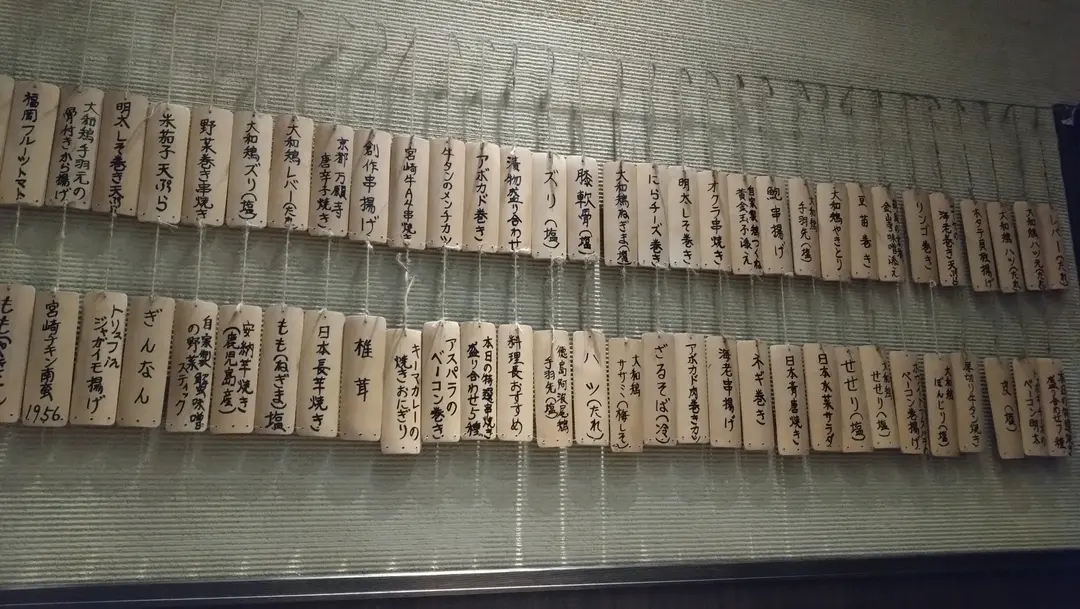 レバー(たれ)
大和鶏ハツ元(たれ)
大和鶏ハツ(たれ)
海老巻き天ぷら
リンゴ巻き
金山寺味噌添え
豆苗巻き
大和鶏やきとり
大和鶏
手羽先(塩)
鮑串揚げ
自家製鶏つくね
黄金玉子添え
オクラ串焼き
明太しそ巻き
にらチーズ巻き
大和鶏ねぎま(塩)
膝軟骨(塩)
ズリ(塩)
漬物盛り合わせ
アボカド巻き
牛タンのメンチカツ
宮崎牛A4串焼き
創作串揚げ
京都万願寺
唐辛子焼き
大和鶏レバー(たれ)
大和鶏ズリ(塩)
野菜巻き串焼き
米茄子天ぷら
明太しそ巻き天ぷら
大和鶏手羽元の
骨付きから揚げ
福岡フルーツトマト
皮(塩)
厚切り牛タン
大和鶏
ぼんじり(塩)
ベーコン巻揚げ
大和鶏
せせり(塩)
せせり(塩)
日本水菜サラダ
日本青唐焼き
ネギ巻き
海老串揚げ
アボカド肉巻きカツ
ざるそば(冷)
大和鶏
ササミ(梅しそ)
ハツ(たれ)
徳島阿波尾鶏
手羽先(塩)
料理長おすすめ
本日の特選串焼き
盛り合わせ5種
アスパラの
ベーコン巻き
キーマカレーの
焼きおにぎり
椎茸
日本長芋焼き
もも(ねぎま)塩
安納芋焼き
(鹿児島産)
自家製 野菜味噌
の野菜スティック
ぎんなん
トリュフ塩
ジャガイモ揚げ
宮崎チキン南蛮
1956